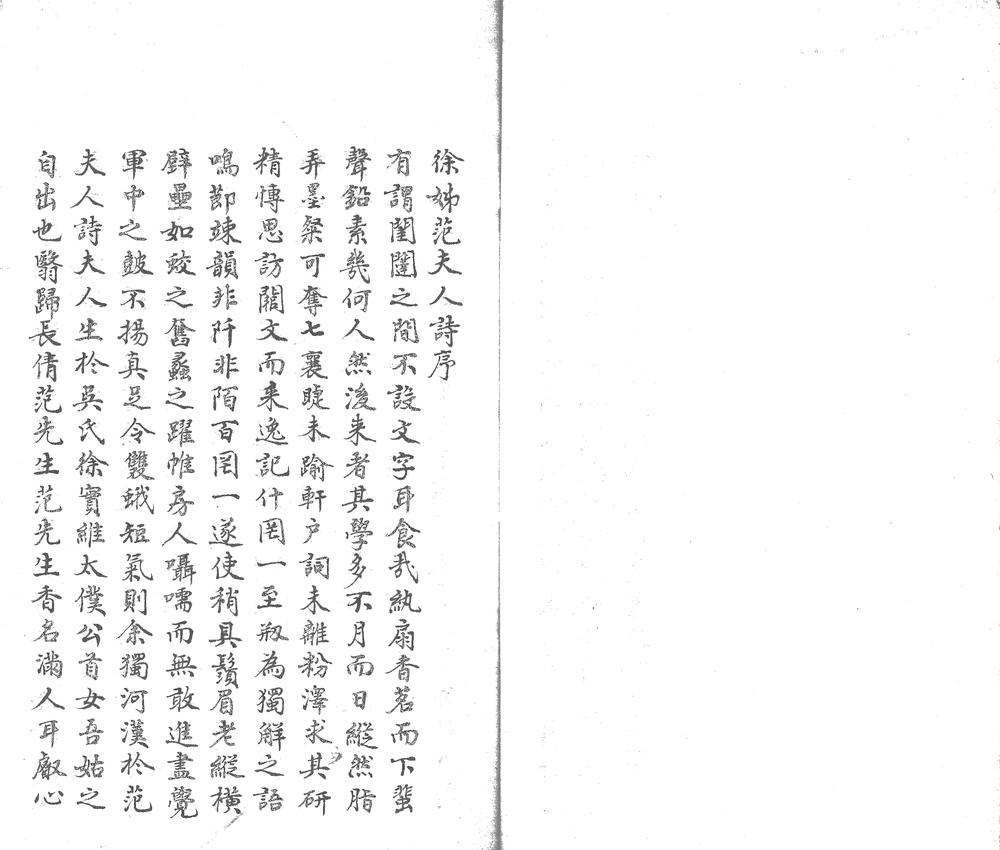 徐姊范夫人詩序
有謂閨闥之間不設文字耳食哉紈扇香茗而下蜚
聲鉛素幾何人然後来者其學多不月而日縱然脂
弄墨粲可奪七襄睫未踰軒户詞未離粉澤求其研
精愽思訪闕文而来逸記什罔一至剏為獨解之語
鳴節竦韻非阡非陌百罔一遂使稍具鬚眉老縱橫
壁壘如蛟之奮蟊之躍帷房人囁嚅而無敢進盡覺
軍中之皷不揚真足令雙蛾短氣則余獨河漢於范
夫人詩夫人生於吳氏徐實維太僕公首女吾姑之
自出也翳歸長倩范先生范先生香名滿人耳廠心